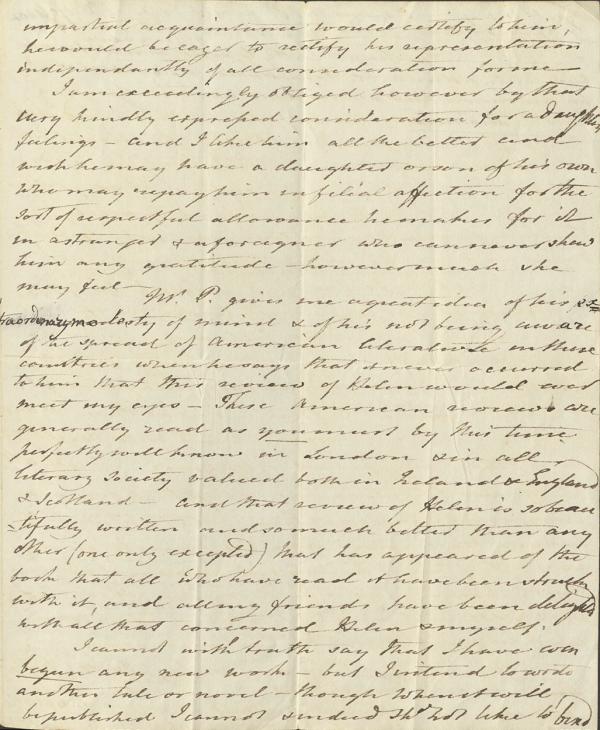 impartial acquaintance would certify to him,
he would be eager to rectify his representation
independantly of all consideration for me—
I am exceedingly obliged however by that
very kindly expressed consideration for a Daughters
feelings - and I like him all the better and
wish he may have a daughter or son of his own
who may repay him in filial affection for the
sort of respectful allowance he makes for it
in a stranger & a foreigner who can never shew
him any gratitude - however much she
may feel —
Mr. P. gives me a great idea of his ex=
traordinary modesty of mind & of his not being aware
of the spread of American literature in these
countries when he says that it never occurred
to him that this review of Helen would ever
meet my eyes - These American reviews are
generally read as you must by this time
perfectly well know in London & in all
literary society valued both in Ireland & England
& Scotland - and that review of Helen is so beau
=tifully written and so much better than any
other (one only excepted) that has appeared of the
book that all who have read it have been struck
with it, and all my friends have been delighted
with all that concerned Helen & myself.
I cannot with truth say that I have even
begun any new work - but I intend to write
another tale or novel - though when it will
be published I cannot & indeed shd. not like to bind